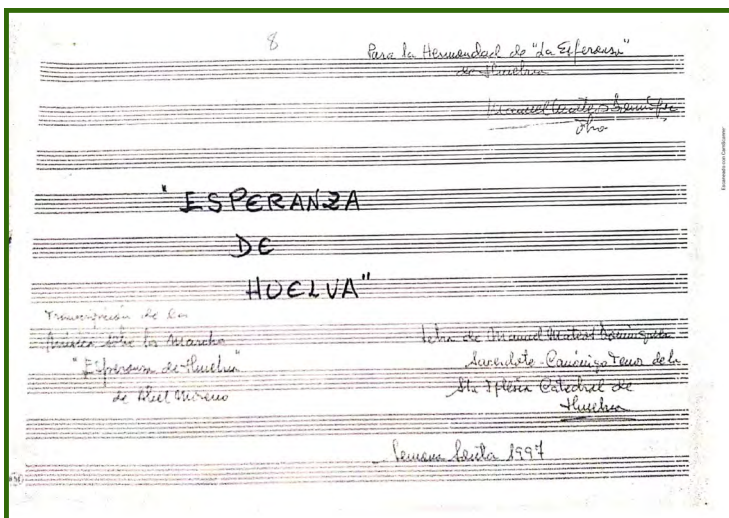 8
Para la Hermandad de "La Esperanza"
de Huelva
Manuel Mateos
"ESPERANZA
DE
HUELVA"
Transcripción de la
música sobre la Marcha
"Esperanza de Huelva"
de Abel Moreno
Letra de Manuel Mateos Domínguez
Sacerdote-Canónigo Tenor de la
Sta Iglesia Catedral de
Huelva
Semana Santa 1997
Escaneado con CamScanner